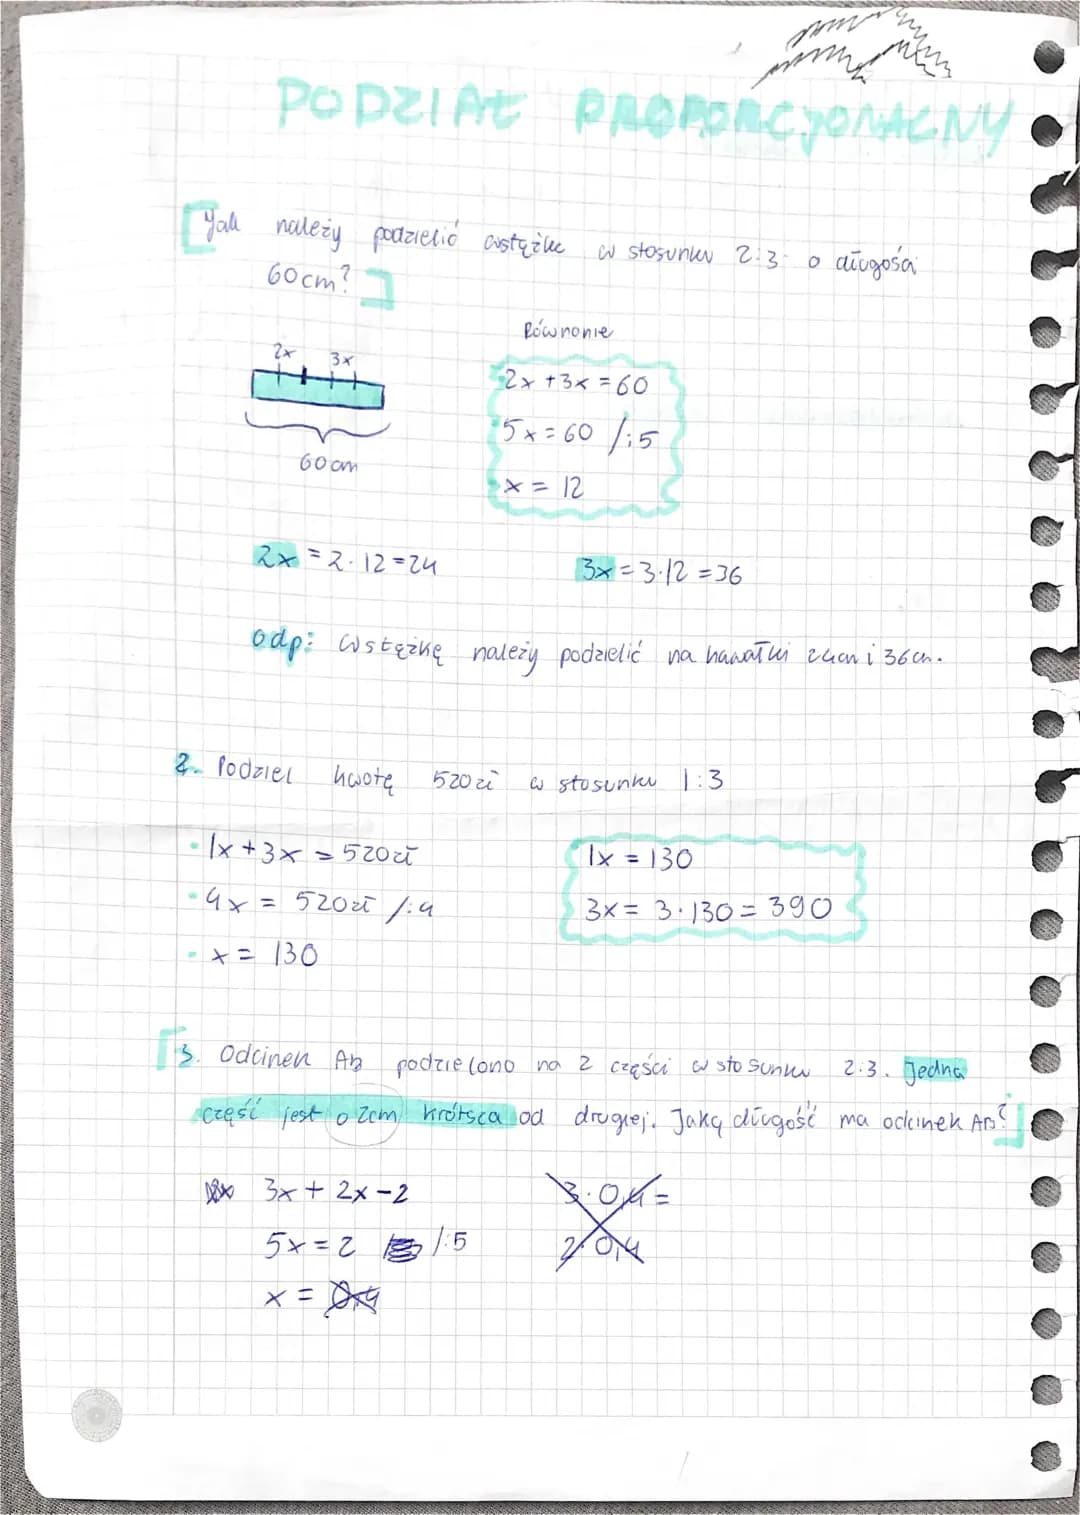 PODZIAŁ PROPORCJONALNY
Jak należy podzielić wstążkę w stosunku 2:3 o długości
60cm?
Równanie
2x 3x
60cm
2x+3x=60
5x=60 /:5
x=12
2x=2·12=24 3x=3·12=36
odp: Wstążkę należy podzielić na kawałki 24cm i 36cm.
2. Podziel kwotę 520zł w stosunku 1:3
1x+3x=520zł
4x=520zł /:4
x=130
1x=130
3x=3·130=390
3. Odcinek AB podzielono na 2 części w stosunku 2:3. Jedna
część jest o 2cm krótsza od drugiej. Jaką długość ma odcinek AB?
3x+2x-2
5x=2 /:5
x=0,4
3·0,4=
2·0,4